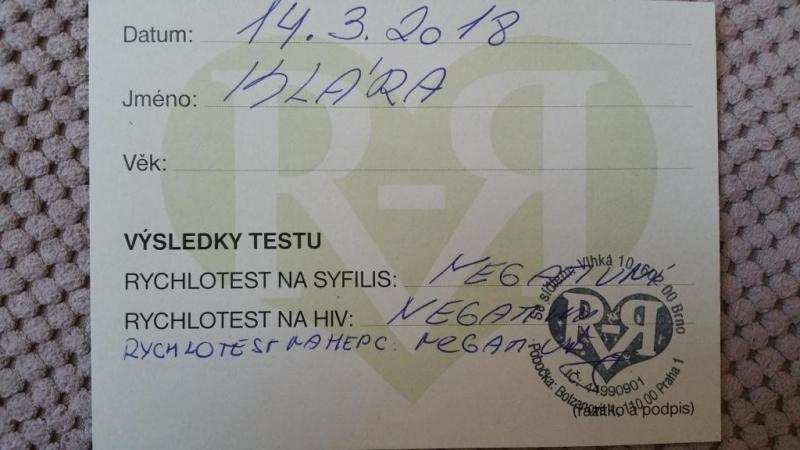 Datum: 14.3.2018
Jméno: KLÁRA
Věk:
R-Я
VÝSLEDKY TESTU
RYCHLOTEST NA SYFILIS: NEGATIVNÍ
RYCHLOTEST NA HIV: NEGATIVNÍ
RYCHLOTEST NA HEPC: NEGATIVNÍ
Se sídlem: Vlhká 10, 602 00 Brno
R-Я
IČ: 44990901
Pobočka: Bolzanova 1, 110 00 Praha 1
(razítko a podpis)